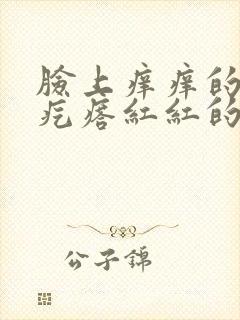 臉上痒痒的
疙瘩紅紅的
公子錦